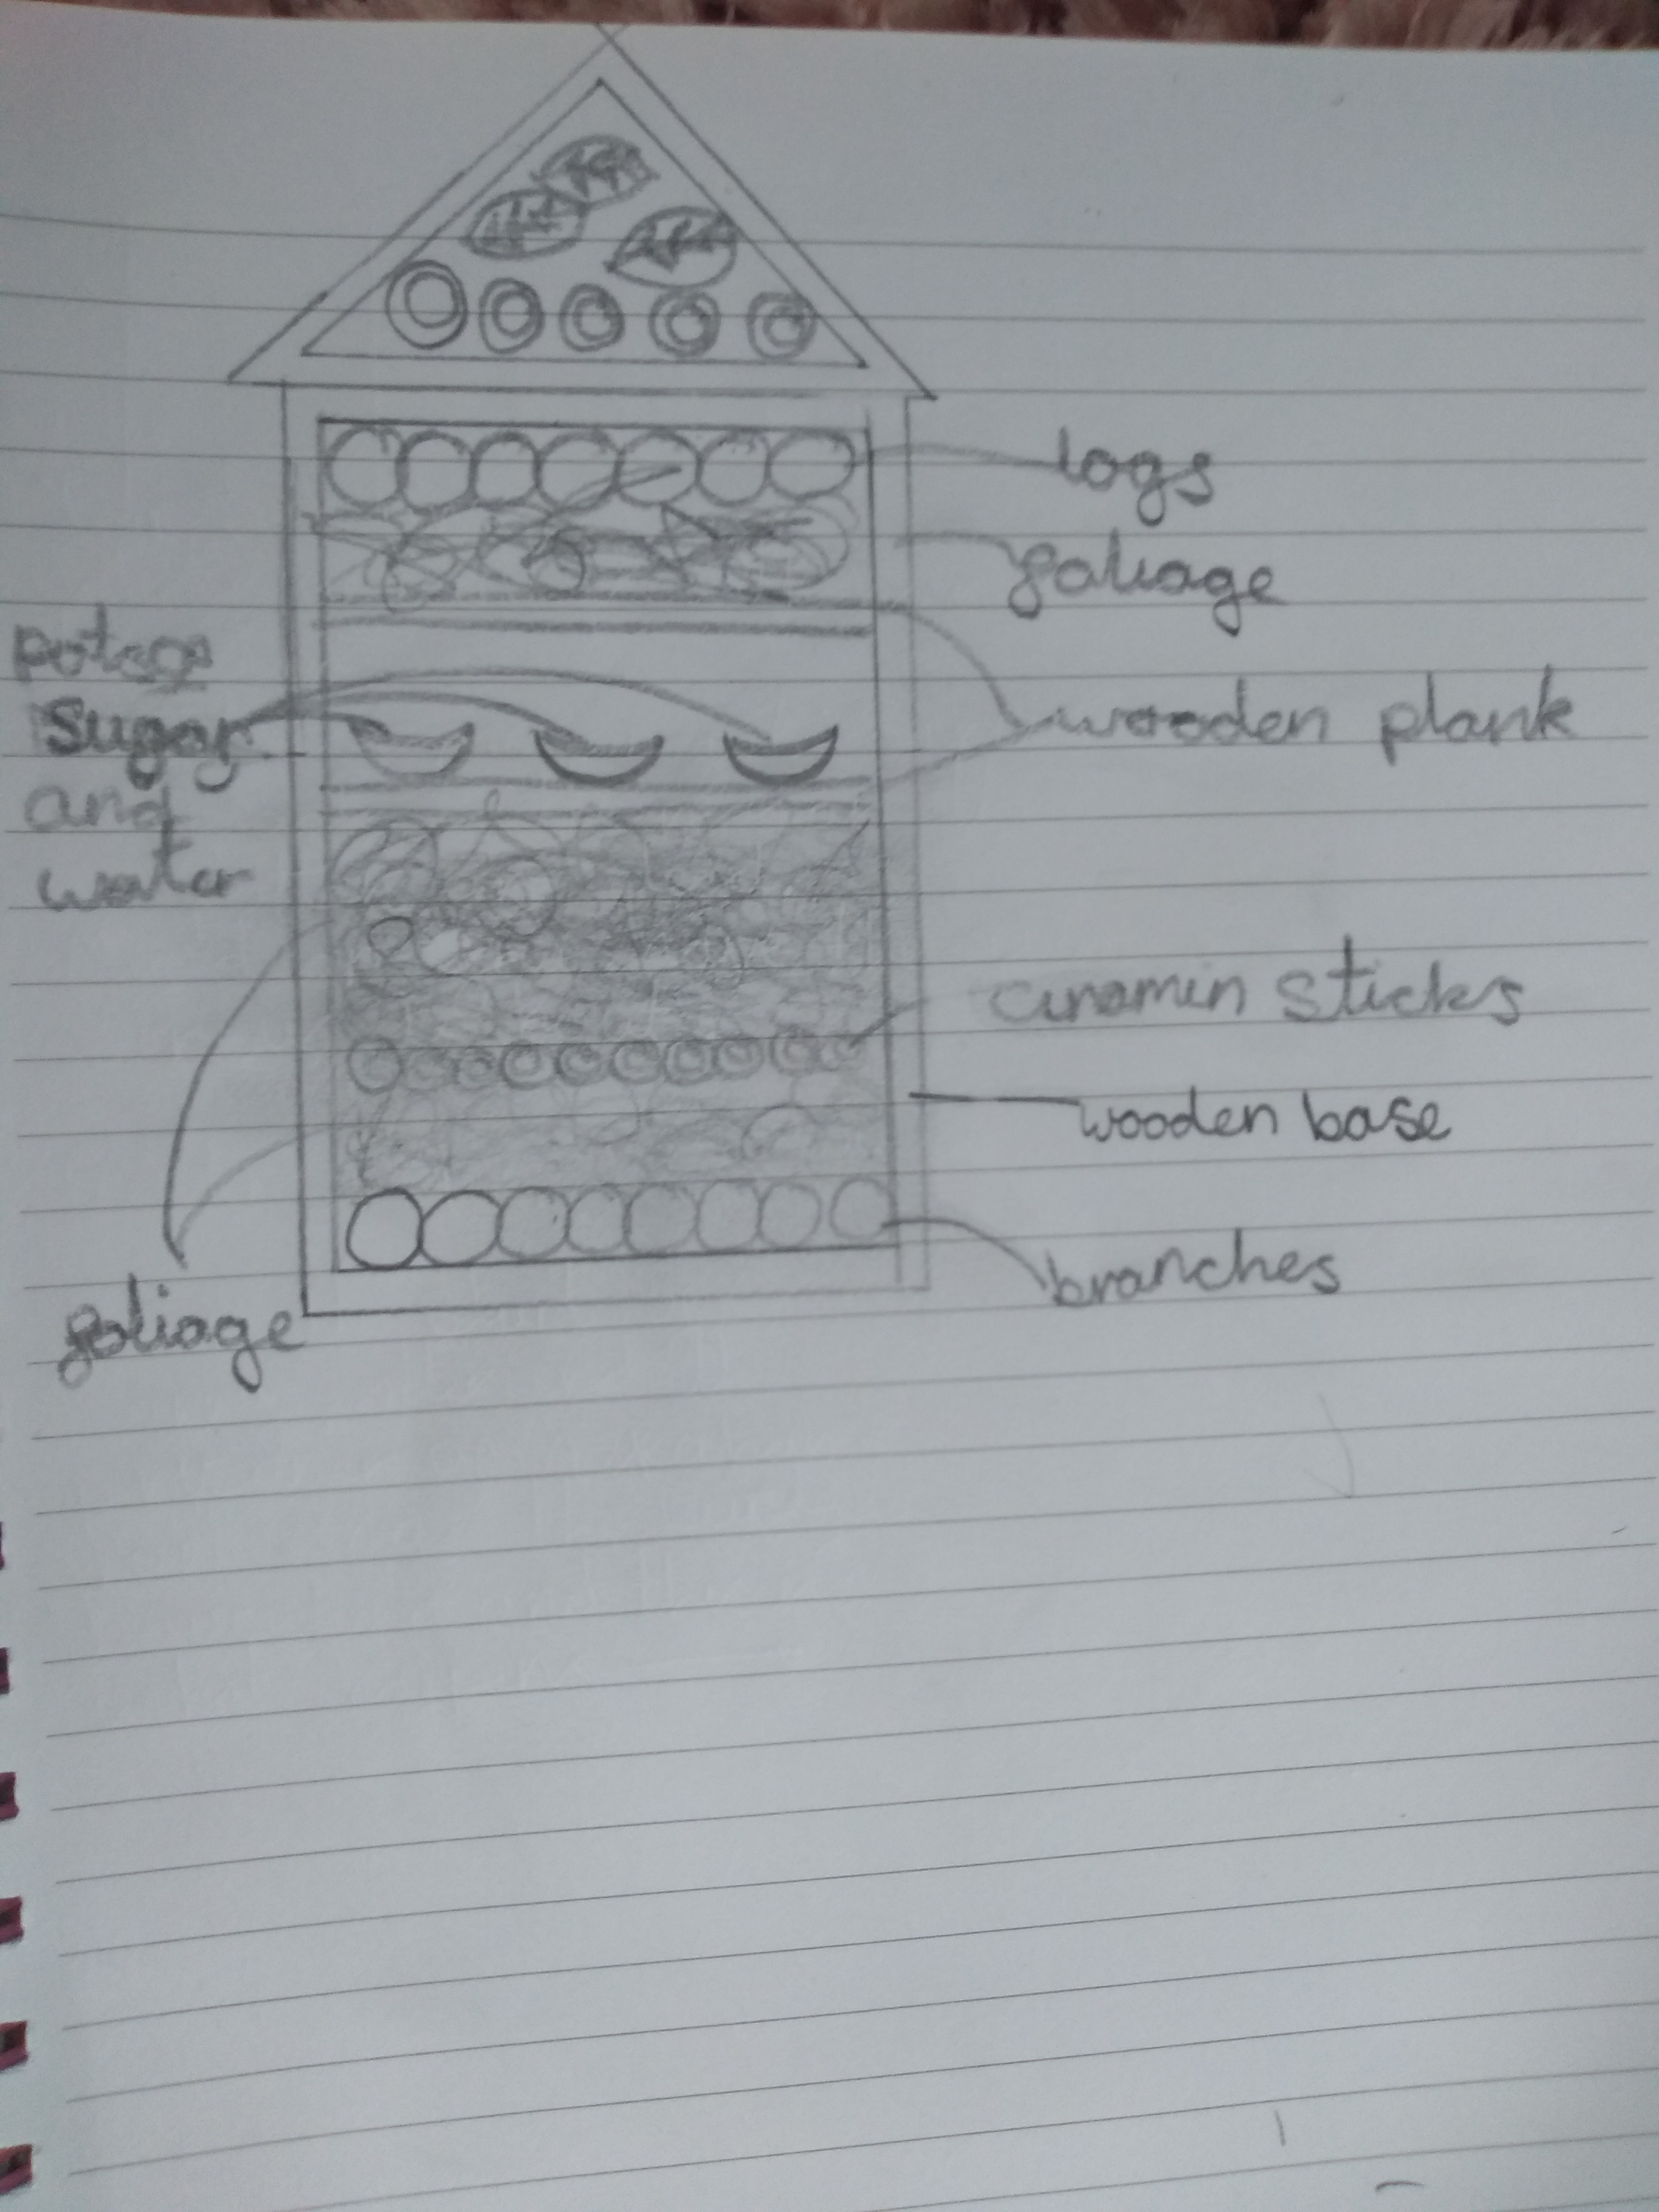 logs
foliage
Sugar
and
water
wooden plank
cinamin sticks
wooden base
branches
foliage